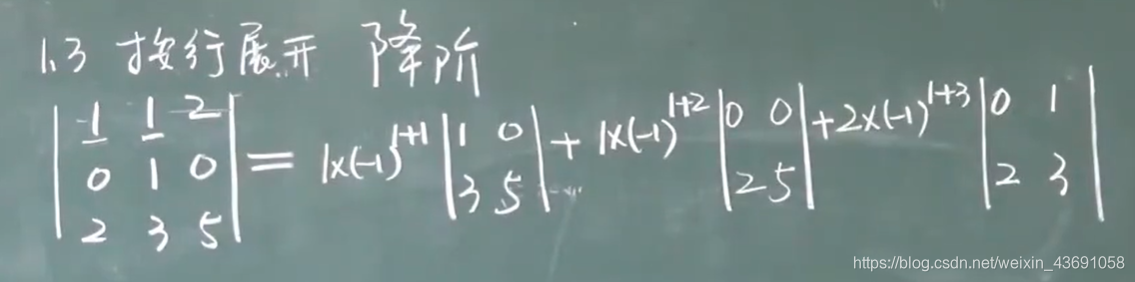 1.3 按行展开 降阶
| 1 1 2 |
| 0 1 0 | = 1×(-1)^{1+1} | 1 0 | + 1×(-1)^{1+2} | 0 0 | + 2×(-1)^{1+3} | 0 1 |
| 2 3 5 | | 3 5 | | 2 5 | | 2 3 |
https://blog.csdn.net/weixin_43691058